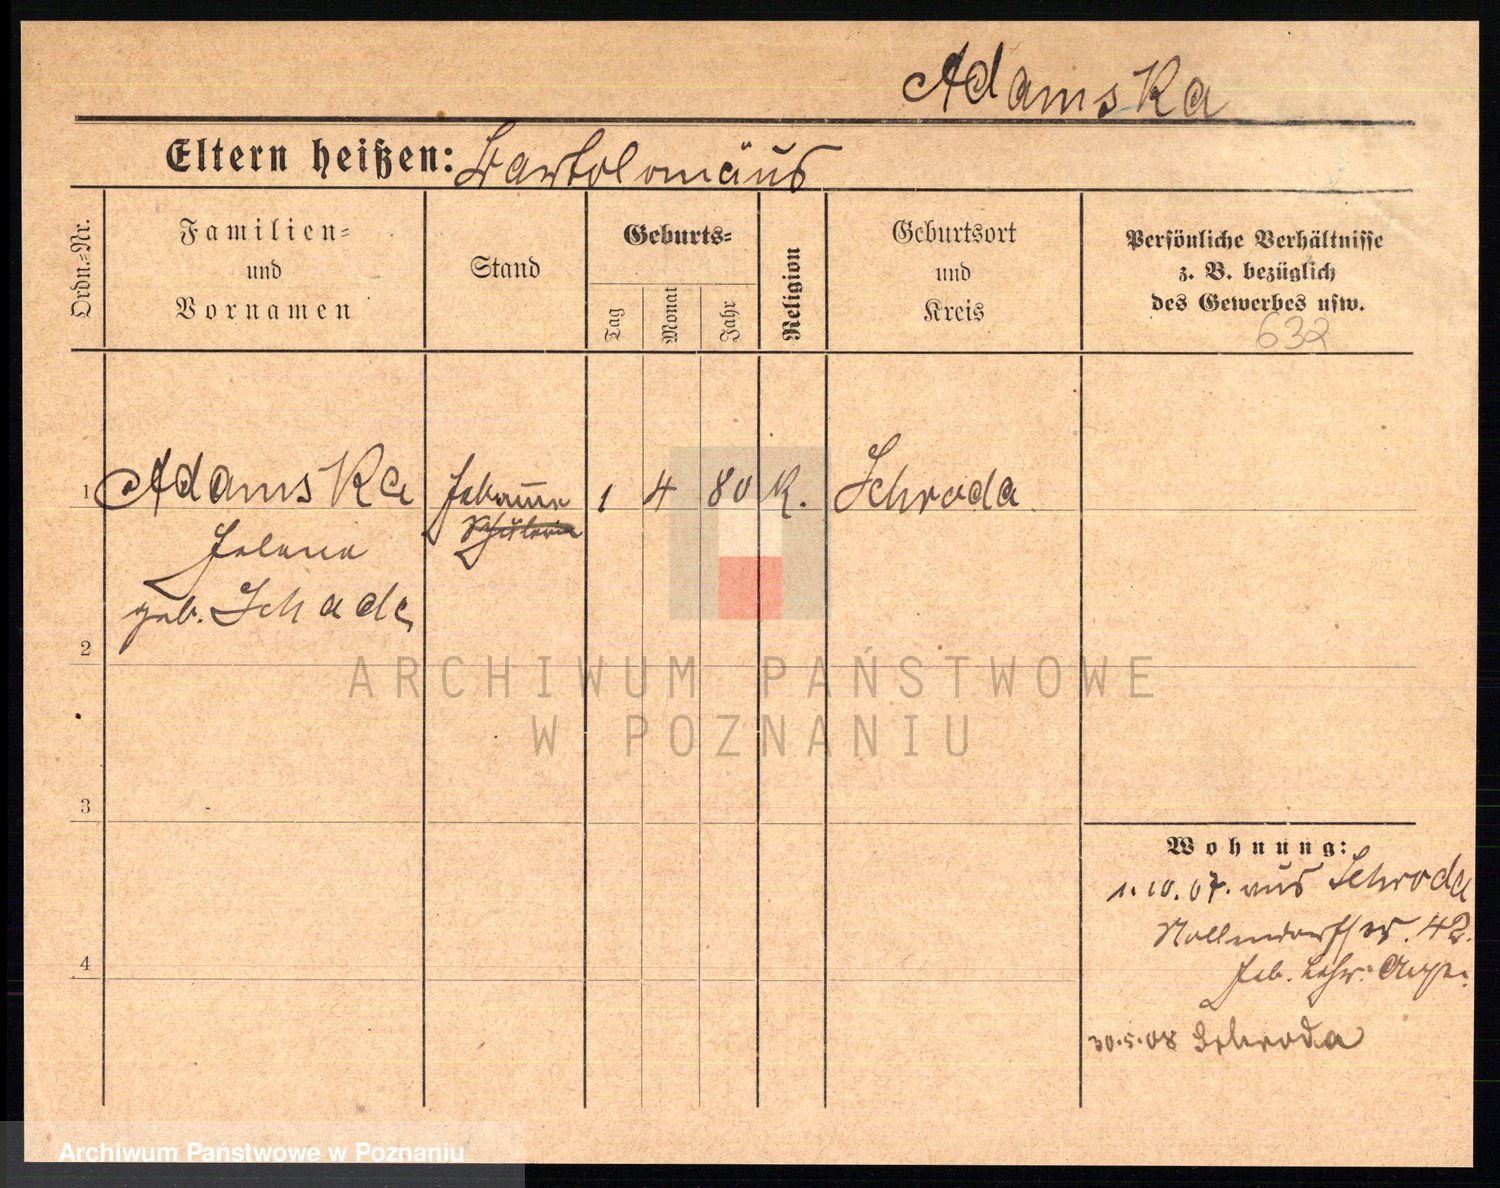 Adamska
Eltern heißen: Bartolomäus
Ordn.-Nr.
Familien-
und
Vornamen
Stand
Geburts-
Tag
Monat
Jahr
Religion
Geburtsort
und
Kreis
Persönliche Verhältnisse
z. B. bezüglich
des Gewerbes usw.
632
1 Adamska Hebamme 1 4 80 K. Schroda
Schülerin
Helene
geb. Schade
2
3
4
Wohnung:
1.10.07. aus Schroda
Nollendorfstr. 42.
Heb. Lehr.
30.5.08 Schroda
ARCHIWUM PAŃSTWOWE
W POZNANIU
Archiwum Państwowe w Poznaniu